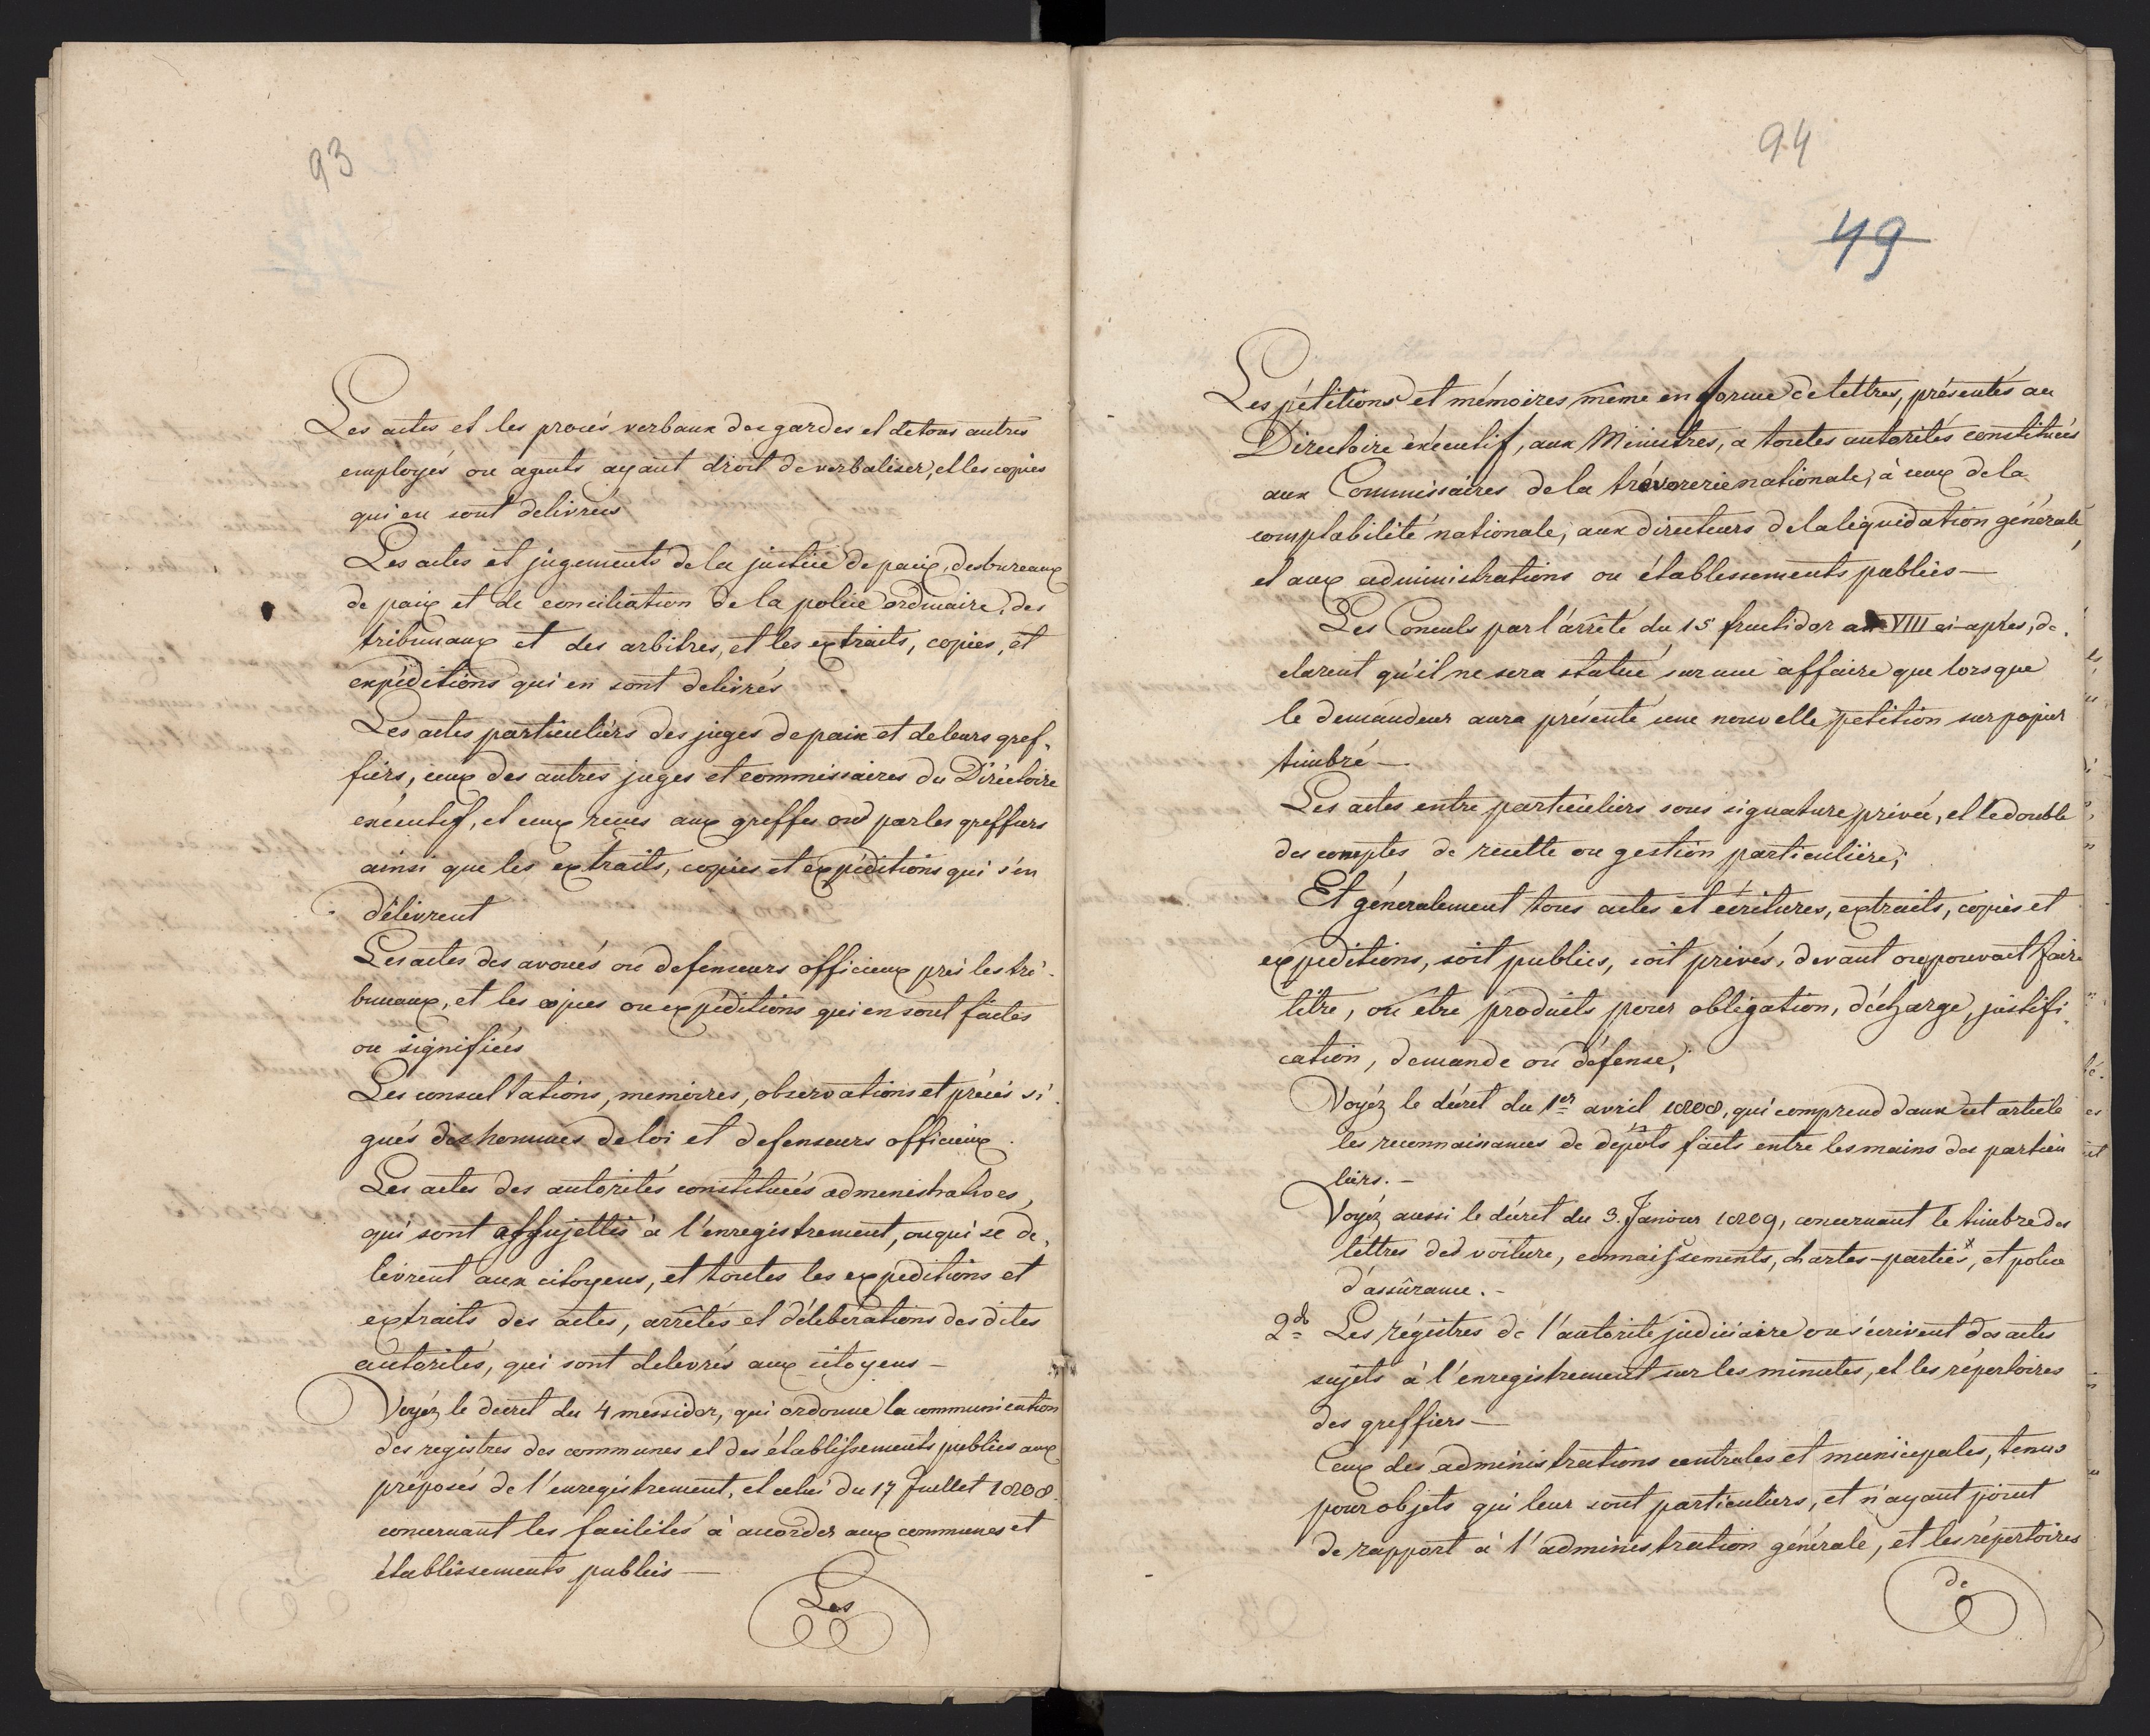 93
Les actes et les procés verbaux des gardes et de tous autres
employés ou agents ayant droit de verbaliser, et les copies
qui en sont delivrées
Les actes et jugements de la justice de paix, des bureaux
de paix et de conciliation de la police ordinaire, des
tribunaux et des arbitres, et les extraits, copies, et
expéditions qui en sont delivrés
Les actes particuliérs des juges de paix et de leurs gref-
fiers, ceux des autres juges et commissaires du Diréctoire
exécutif, et ceux reçus aux greffes ou par les greffiers
ainsi que les extraits, copies et expéditions qui s'en
délivrent
Les actes des avoués ou defenseurs officieux près les tri-
bunaux, et les copies ou expéditions qui en sont faites
ou signifiées
Les consultations, memoires, observations et précis si-
gnés des hommes de loi et defenseurs officieux.
Les actes des autorités constituées administratives,
qui sont assujettis à l'enregistrement, ou qui se dé-
livrent aux citoyens, et toutes les expeditions et
extraits des actes, arrêtés et délibérations des dites
autorités, qui sont delivrés aux citoyens -
Voyéz le decret du 4 messidor, qui ordonne la communication
des registres des communes et des établissements publics aux
préposés de l'enregistrement, et celui du 17 Juillet 1808
concernant les facilités à accorder aux communes et
établissements publics -
Les
94
49
Les pétitions et mémoires même en forme de lettres, présentés au
Directoire exécutif, aux Ministres, a toutes autorités constituées
aux Commissaires de la trésorerie nationale, à ceux de la
comptabilité nationale, aux directeurs de la liquidation générale,
et aux administrations ou établissements publics -
Les Consuls par l'arrêté du 15 fructidor an VIII ci-après, dé-
clarent qu'il ne sera statué sur une affaire que lorsque
le demandeur aura présenté une nouvelle petition sur papier
timbré -
Les actes entre particuliers sous signature privée, et le double
des comptes de recette ou gestion particulière;
Et géneralement tous actes et écritures, extraits, copies et
expéditions, soit publics, soit privés, devant ou pouvant faire
titre, ou être produits pour obligation, décharge, justifi-
cation, demande ou défense;
Voyéz le décret du 1er avril 1808, qui comprend dans cet article
les reconnaissances de dépôts faits entre les mains des particu
liers. -
Voyéz aussi le décret du 3. Janvier 1809, concernant le timbre des
lettres des voiture, connaissements, chartes-parties, et police
d'assûrance. -
2do Les régistres de l'autorité judiciaire ou s'écrivent des actes
sujets à l'enregistrement sur les minutes, et les répertoires
des greffiers -
Ceux des administrations centrales et municipales, tenus
pour objets qui leur sont particuliers, et n'ayant point
de rapport à l'administration générale, et les répertoires
de